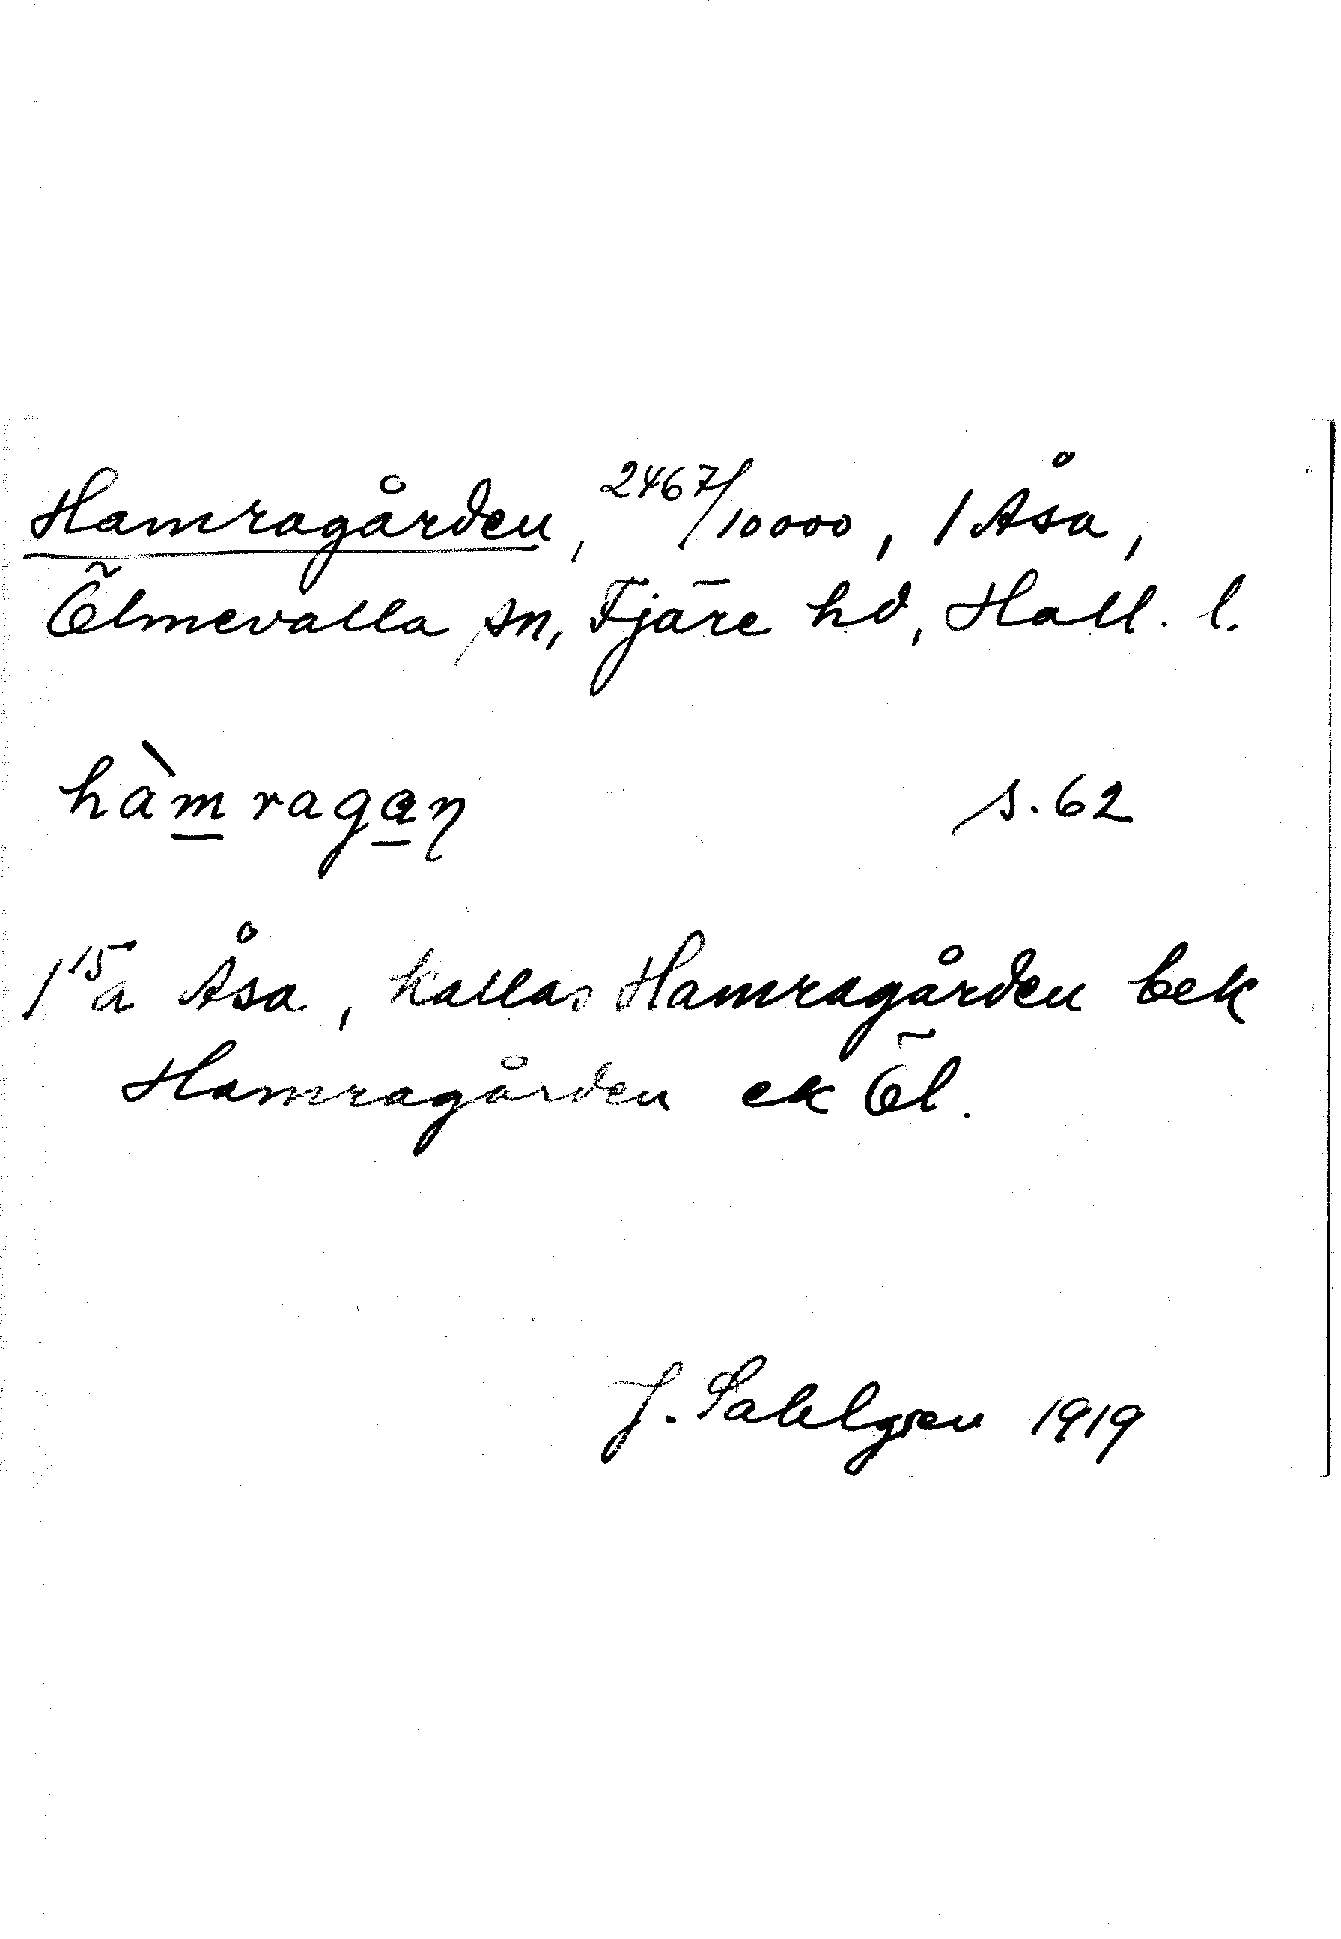 Hamragården, 2467/10000, 1 Åsa,
Ölmevalla sn, Fjäre hd, Hall. l.
hàmragaɳ s. 62
1 15a Åsa, kallas Hamragården bek
Hamragården ek Öl.
J. Sahlgren 1919